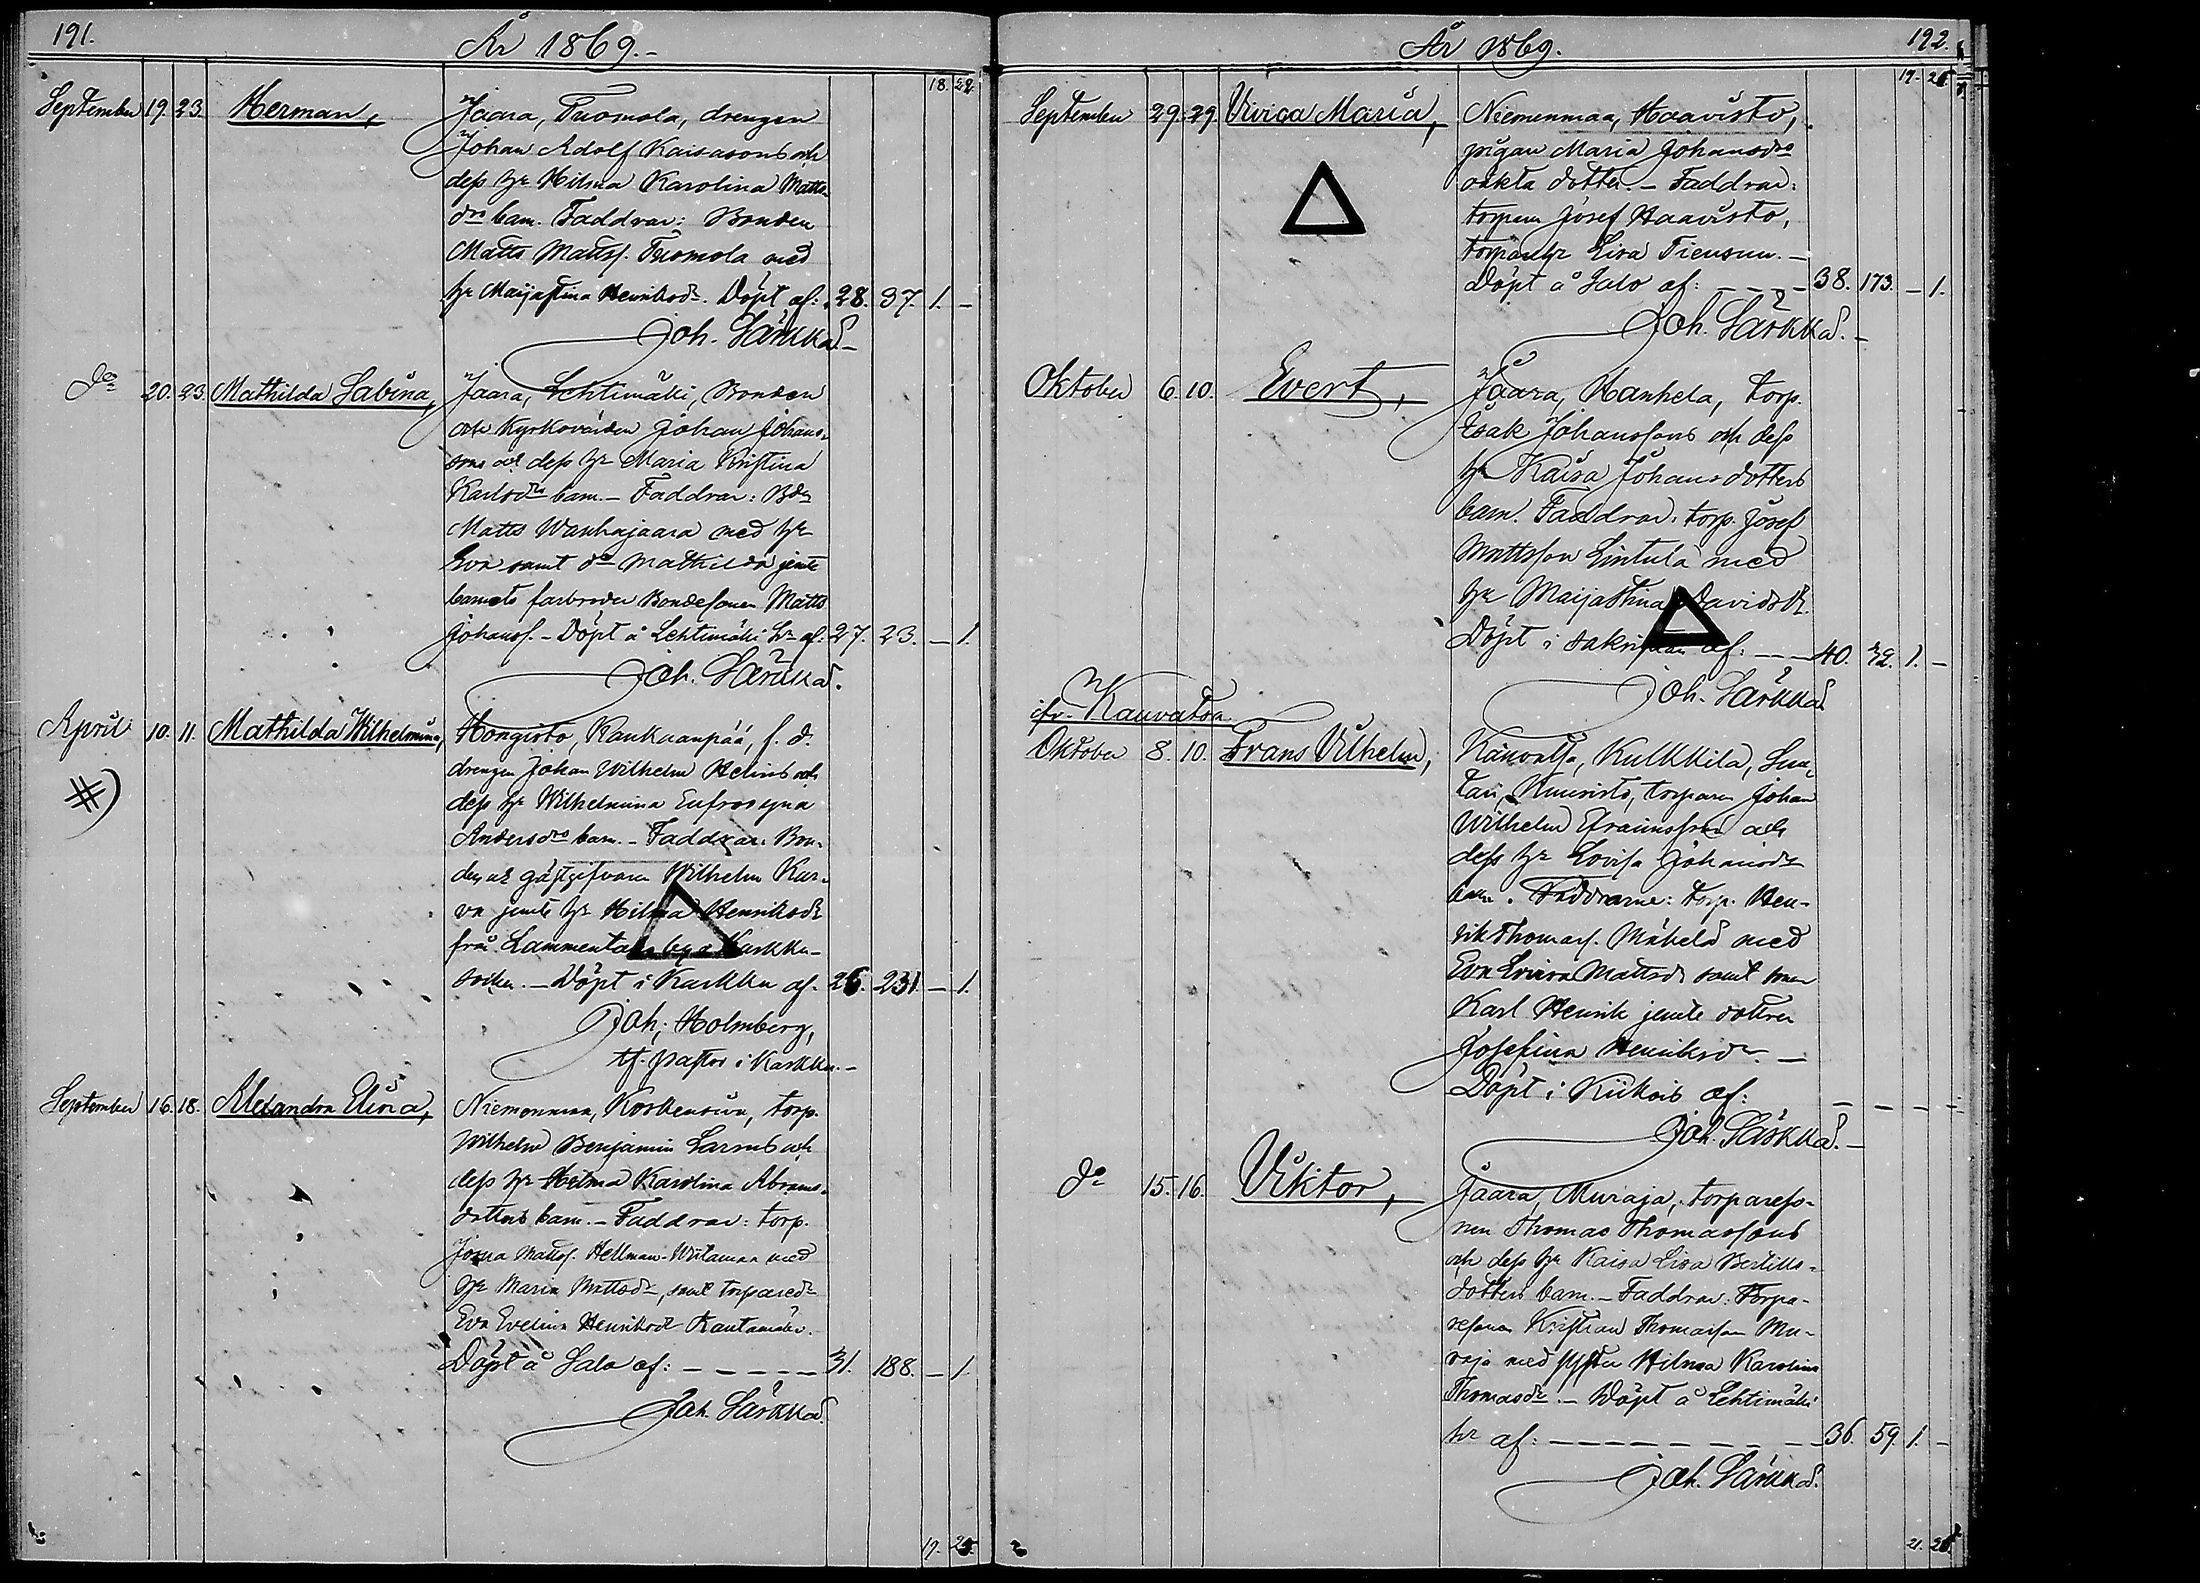 191.
År 1869.-
18. 22.
September 19. 23. Herman, Jaara, Tuomola, drengen
Johan Adolf Kaisasons och
dess hr Hilma Karolina Matts-
drs barn. Faddrar: Bonden
Matts Mattss. Tuomola med
hr Maijastina Henriksdr. Döpt af: 28. 37. 1. -
Joh. Särkkä.-
do 20. 23. Mathilda Sabina, Jaara, Lehtimäki, Bonden
och Kyrkovärden Johan Johans-
sons och dess hr Maria Kristina
Karlsdrs barn.- Faddrar: Bdn
Matts Wanhajaara med hr
Eva samt dr Mathilda jemte
barnets farbroder Bondesonen Matts
Johanss.- Döpt å Lehtimäki hr af: 27. 23. - 1.
Joh. Särkkä.
April 10. 11. Mathilda Wilhelmina, Hongisto, Raukuanpää, f. d.
#)
drengen Johan Wilhelm Helins och
dess hr Wilhelmina Eufrosyna
Andersdrs barn.- Faddrar: Bon-
den och gästgifvaren Wilhelm Kur-
va jemte hr Hilma Henriksdr
från Lammentaka by i Karkku
socken.- Döpt i Karkku af. 26. 231. - 1.
Joh. Holmberg,
tf. pastor i Karkku.-
September 16. 18. Alexandra Elina, Niemenmaa, Koskensuu, torp.
Wilhelm Benjamin Larsons och
dess hr Hilma Karolina Abrams-
dotters barn.- Faddrar: torp.
Josua Mattss. Hellman-Wiitamaa med
hr Maria Mattsdr, samt torparedr
Eva Evelina Henriksdr Rautamäki.
Döpt å Salo af: - - - - - 31. 188. - 1.
Joh. Särkkä.
19. 25.
År 1869.
192.
19. 25.
September 29. 29. Viviga Maria, Niemenmaa, Haavisto,
pigan Maria Johansdrs
oäkta dotter.- Faddrar:
torparen Josef Haavisto,
torparehr Lisa Tiensuu.-
Döpt å Salo af: - - - - 38. 173. - 1.
Joh. Särkkä.-
Oktober 6. 10. Evert, Jaara, Hanhela, torp.
Isak Johanssons och dess
hr Kaisa Johansdotters
barn. Faddrar: torp. Josef
Mattsson Lintula med
hr Maijastina Davidsdr.
Döpt i sakristian af: - - 40. 32. 1. -
Joh. Särkkä
ifr. Kauvatsa
Oktober 8. 10. Frans Vilhelm, Kauvatsa, Kulkkila, Sun-
tari, Kuusisto, torparen Johan
Wilhelm Efraimssons och
dess hr Lovisa Johansdrs
barn. Faddrarne: torp. Hen-
rik Thomass. Mäkelä med
Eva Lovisa Mattsdr samt sonen
Karl Henrik jemte dottren
Josefina Henriksdr.-
Döpt i Kiikois af: - - - -
Joh. Särkkä.-
do 15. 16. Viktor, Jaara, Muraja, torpareso-
nen Thomas Thomassons
och dess hr Kaisa Lisa Bertils-
dotters barn.- Faddrar: Torpa-
resonen Kristian Thomasson Mu-
raja med syster Hilma Karolina
Thomasdr.- Döpt å Lehtimäki
hr af: - - - - - - - - 36. 59. 1. -
Joh. Särkkä.
21. 26.